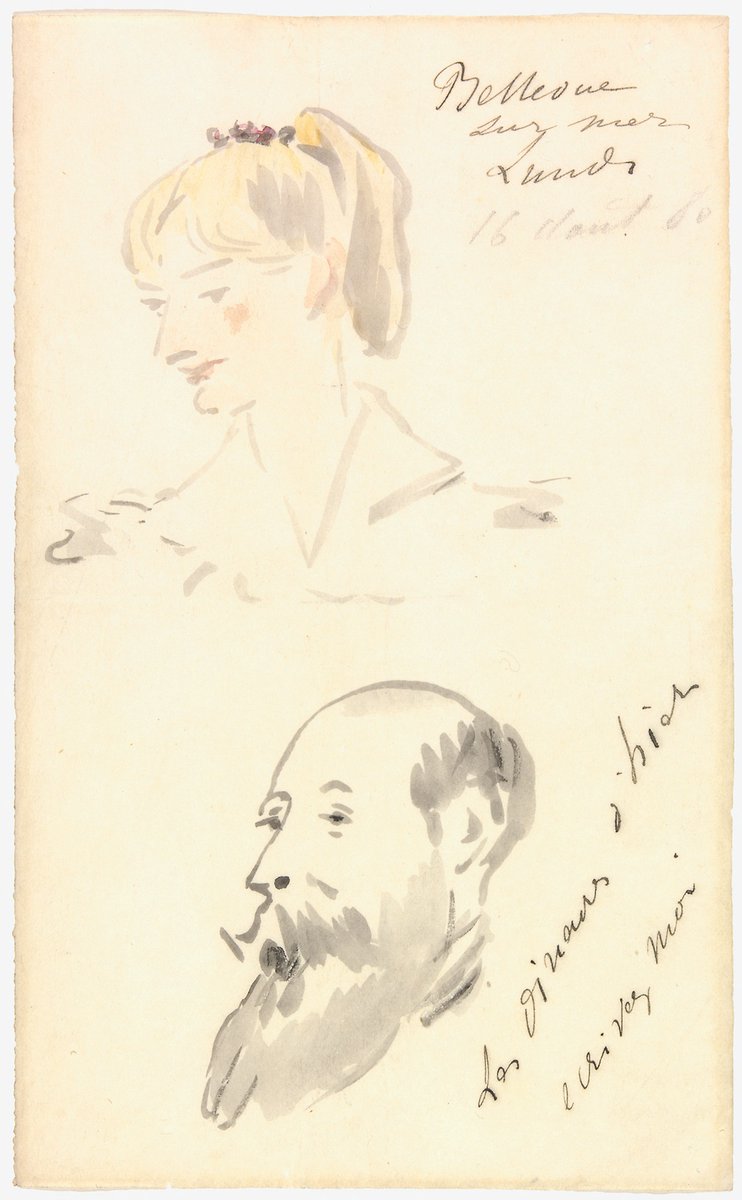 Bellevue
sur mer
Lundi
16 Aout 80
Les dineurs d'hier
ecrivez moi